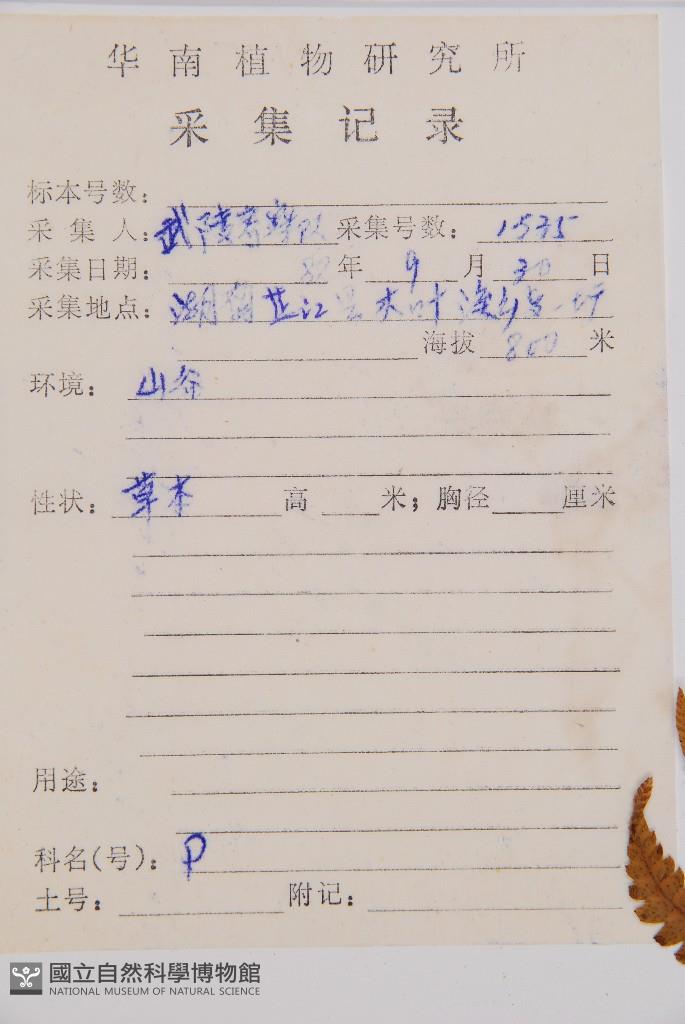 华南植物研究所
采集记录
标本号数：
采集人：武陵考察队 采集号数：1535
采集日期：88年9月30日
采集地点：湖南芷江县木叶溪乡
海拔800米
环境：山谷
性状：草本 高 米；胸径 厘米
用途：
科名(号)：P
土号： 附记：
國立自然科學博物館
NATIONAL MUSEUM OF NATURAL SCIENCE